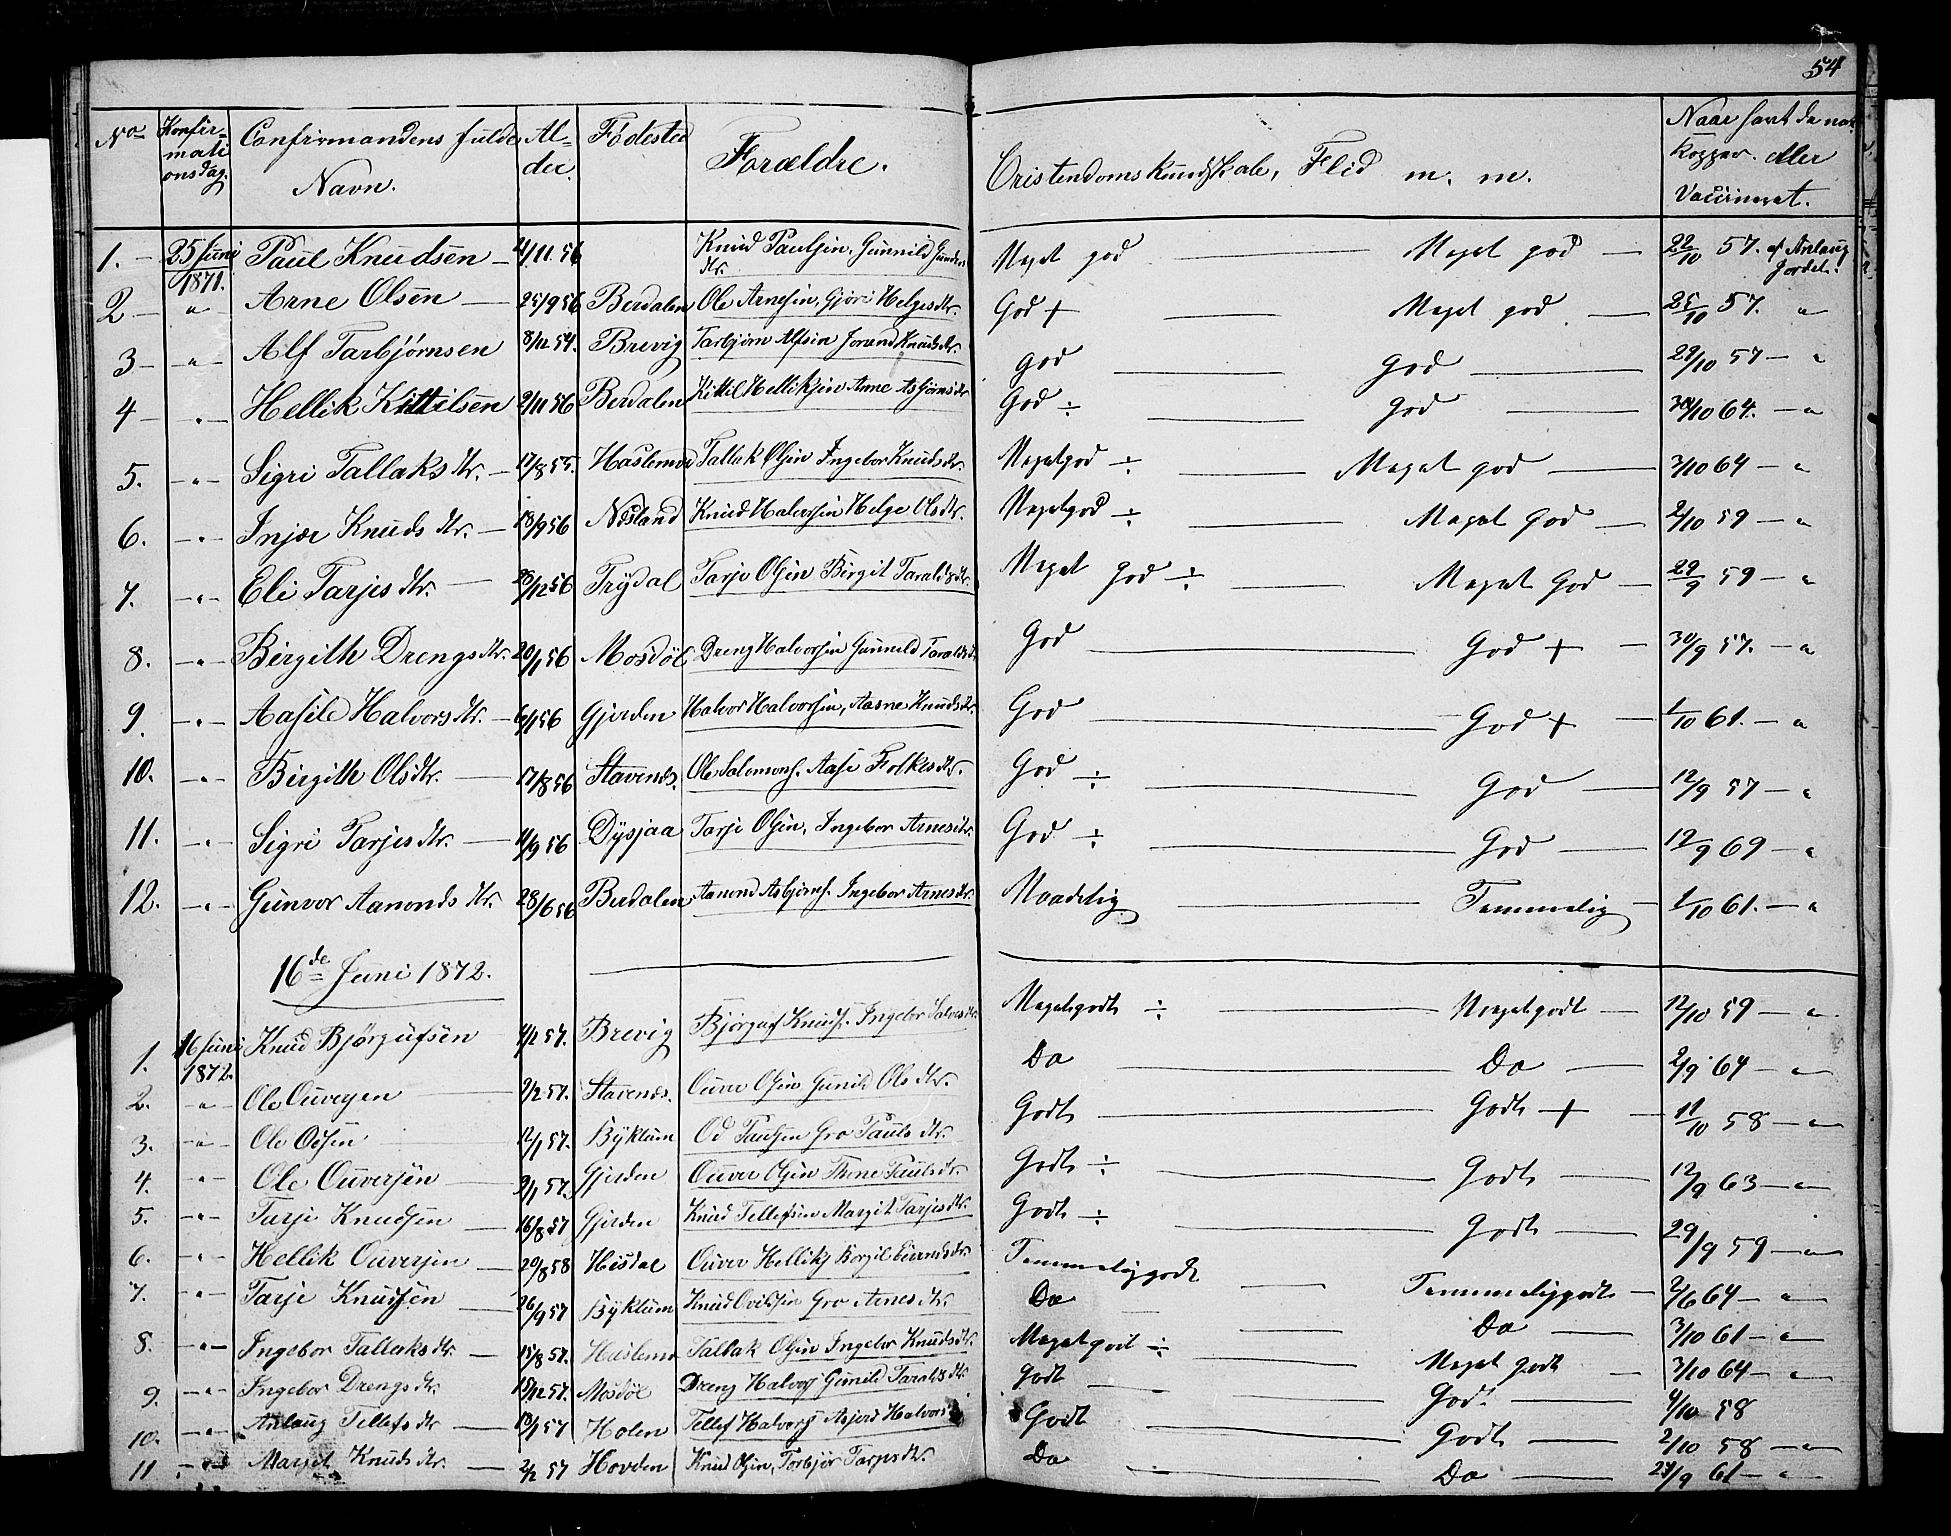 54
No Konfirmationsdag. Confirmandens fulde Navn. Alder. Födested Forældre. Cristendomskundskab, Flid m. m. Naar havt de nat. Kopper eller Vaccineret.
1. — 25 Juni 1871. Paul Knudsen — 4/11 56 Knud Paulsen, Gunnild Gundersdtr. Meget god — Meget god — 22/10 57. af Anlaug Jordet.
2 — " — Arne Olsen — 25/9 56 Berdalen Ole Arnesen, Gjöri Helgesdtr. God + — Meget god — 25/10 57. "
3 — " — Alf Tarbjørnsen 8/12 54. Brevig Tarbjörn Alfsen Jorend Knudsdtr. God — God — 29/10 57 — "
4 — " — Hellik Kittilsen 2/11 56 Berdalen Kittil Helliksen Anne Asbjörnsdtr God ÷ — God — 30/10 64. — "
5. — " — Sigri Tallaksdtr. — 17/8 55. Haslemo Tallak Olsen Ingebor Knudsdtr. Megetgod ÷ — Meget god — 3/10 64 — "
6. — " — Injær Knudsdtr. — 18/9 56 Nesland Knud Halvorsen Helge Olsdtr. Megetgod ÷ — Meget God — 2/10 59 — "
7. — " — Eli Tarjesdtr. — 28/12 56 Trydal Tarje Olsen Birgit Taraldsdtr. Meget god ÷ — Meget God — 29/9 59 — "
8. — " — Birgith Drengsdtr. 20/1 56 Mosdöl Dreng Halvorsen Gunnild Taraldsd. God — God + — 30/9 57. — "
9. — " — Aasild Halvorsdtr. — 6/1 56 Gjerden Halvor Halvorsen, Aasne Knudsdtr. God — God + — 1/10 61. — "
10. — " — Birgith Olsdtr. — 17/8 56 Stavenes. Ole Salomons. Aase Folkesdtr. God ÷ — God — 12/9 57 — "
11. — " — Sigri Tarjesdtr. — 11/9 56 Dysjaa Tarje Olsen, Ingebor Arnesdtr. God ÷ — God — 12/9 69 — "
12. — " — Gunvor Aanondsdtr. — 28/6 56 Berdalen Aanond Asbjörns. Ingebor Arnesdtr. Maadelig — Temmelig — 1/10 61. — "
16de Juni 1872.
1. 16 Juni 1872. Knud Bjørgufsen 4/2 57. Brevig Bjørguf Knuds. Ingebor Salvesdtr Megetgodt ÷ — Megetgodt — 12/10 59 — "
2. — " — Ole Ouversen — 9/2 57. Stavenes. Ouver Olsen Gunild Olsdtr. Do — Do — 2/9 64 — "
3. — " — Ole Odsen 12/1 57. Byklum Od Paulsen Gro Paulsdtr. Godt — Godt + — 11/10 58 — "
4. — " — Ole Ouversen — 9/1 57. Gjerden Ouver Olsen Thone Paulsdtr. Godt ÷ — Godt — 12/9 63 — "
5. — " — Tarje Knudsen — 16/8 57 Gjerden Knud Tellefsen Margit Tarjesdtr. Godt ÷ — Godt — 29/9 59 — "
6. — " — Hellik Ouversen — 29/8 58 Hisdal Ouver Helliks Borgil Eivendsdtr. Temmeliggodt — Temmeliggodt — 2/6 64 — "
7. — " — Tarje Knudsen — 26/9 57 Byklum Knud Gro Arnesdtr. Do — Do — 3/10 61 — "
8. — " — Ingebor Tallaksdtr. — 15/8 57. Haslemo Tallak Olsen Ingebor Knudsdtr. Megetgod ÷ — Meget godt — 3/10 64 — "
9. — " — Ingebor Drengsdtr. 15/12 57. Mosdöl Dreng Halvors Gunild Taraldsdtr. Godt — God. — 4/10 58
10. — " — Anlaug Tellefsdtr 13/1 57 Holen Tellef Halvors Asjerd Halvors Godt — Godt — 2/10 58 — "
11 — " — Margit Knudsdtr. 2/2 57 Hovden Knud Olsen, Torbjör Tarjesdtr. Do — Do — 24/9 61 — "